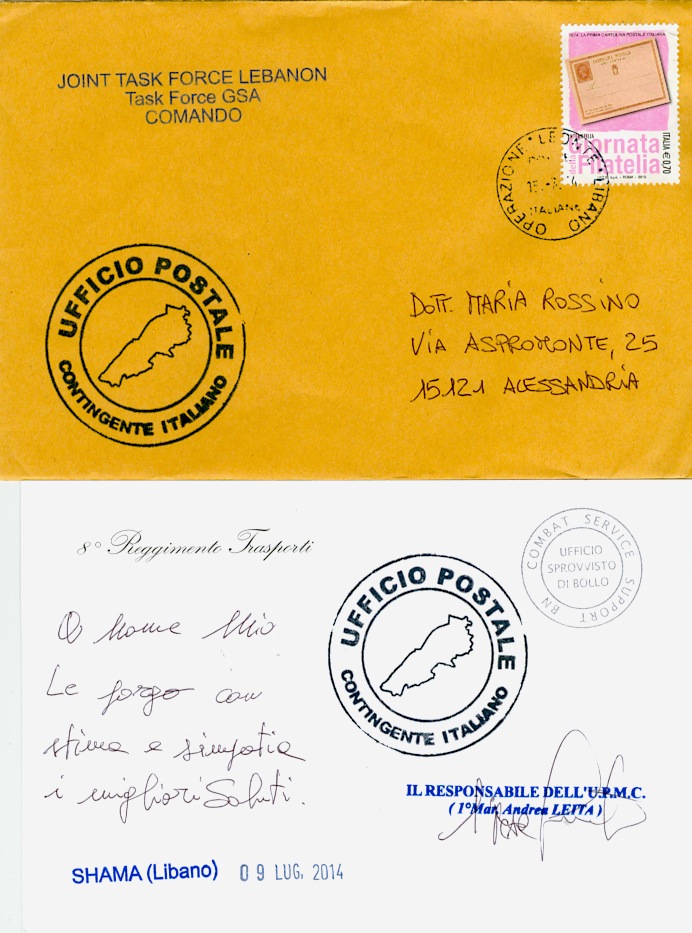 JOINT TASK FORCE LEBANON
Task Force GSA
COMANDO
1874 LA PRIMA CARTOLINA POSTALE ITALIANA
Giornata
della Filatelia
ITALIA € 0,70
OPERAZIONE * LEONTE * LIBANO
ITALIANE
UFFICIO POSTALE
CONTINGENTE ITALIANO
DOTT. MARIA ROSSINO
VIA ASPROMONTE, 25
15121 ALESSANDRIA
8° Reggimento Trasporti
COMBAT SERVICE SUPPORT BN
UFFICIO
SPROVVISTO
DI BOLLO
UFFICIO POSTALE
CONTINGENTE ITALIANO
A Nome Mio
Le porgo con
stima e simpatia
i migliori Saluti.
IL RESPONSABILE DELL'U.P.M.C.
( 1°Mar. Andrea LEITA )
SHAMA (Libano) 09 LUG, 2014